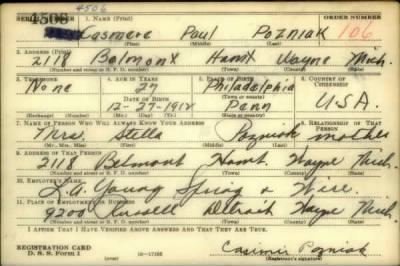 4506
SERIAL NUMBER 1. NAME (Print) ORDER NUMBER
4506 Casmere Paul Pozniak 106
(First) (Middle) (Last)
2. ADDRESS (Print)
2118 Belmont Hamt Wayne Mich.
(Number and street or R. F. D. number) (Town) (County) (State)
3. TELEPHONE 4. AGE IN YEARS 5. PLACE OF BIRTH 6. COUNTRY OF CITIZENSHIP
None 27 Philadelphia
DATE OF BIRTH (Town or county)
12-27-1912 Penn U.S.A.
(Exchange) (Number) (Mo.) (Day) (Yr.) (State or country)
7. NAME OF PERSON WHO WILL ALWAYS KNOW YOUR ADDRESS 8. RELATIONSHIP OF THAT PERSON
Mrs. Stella Pozniak mother
(Mr., Mrs., Miss) (First) (Middle) (Last)
9. ADDRESS OF THAT PERSON
2118 Belmont Hamt Wayne Mich.
(Number and street or R. F. D. number) (Town) (County) (State)
10. EMPLOYER'S NAME
L.A. Young Spring & Wire.
11. PLACE OF EMPLOYMENT OR BUSINESS
9200 Russell Detroit Wayne Mich.
(Number and street or R. F. D. number) (Town) (County) (State)
I AFFIRM THAT I HAVE VERIFIED ABOVE ANSWERS AND THAT THEY ARE TRUE.
REGISTRATION CARD
D. S. S. Form 1 16-17105 Casimir Pozniak
(Registrant's signature)